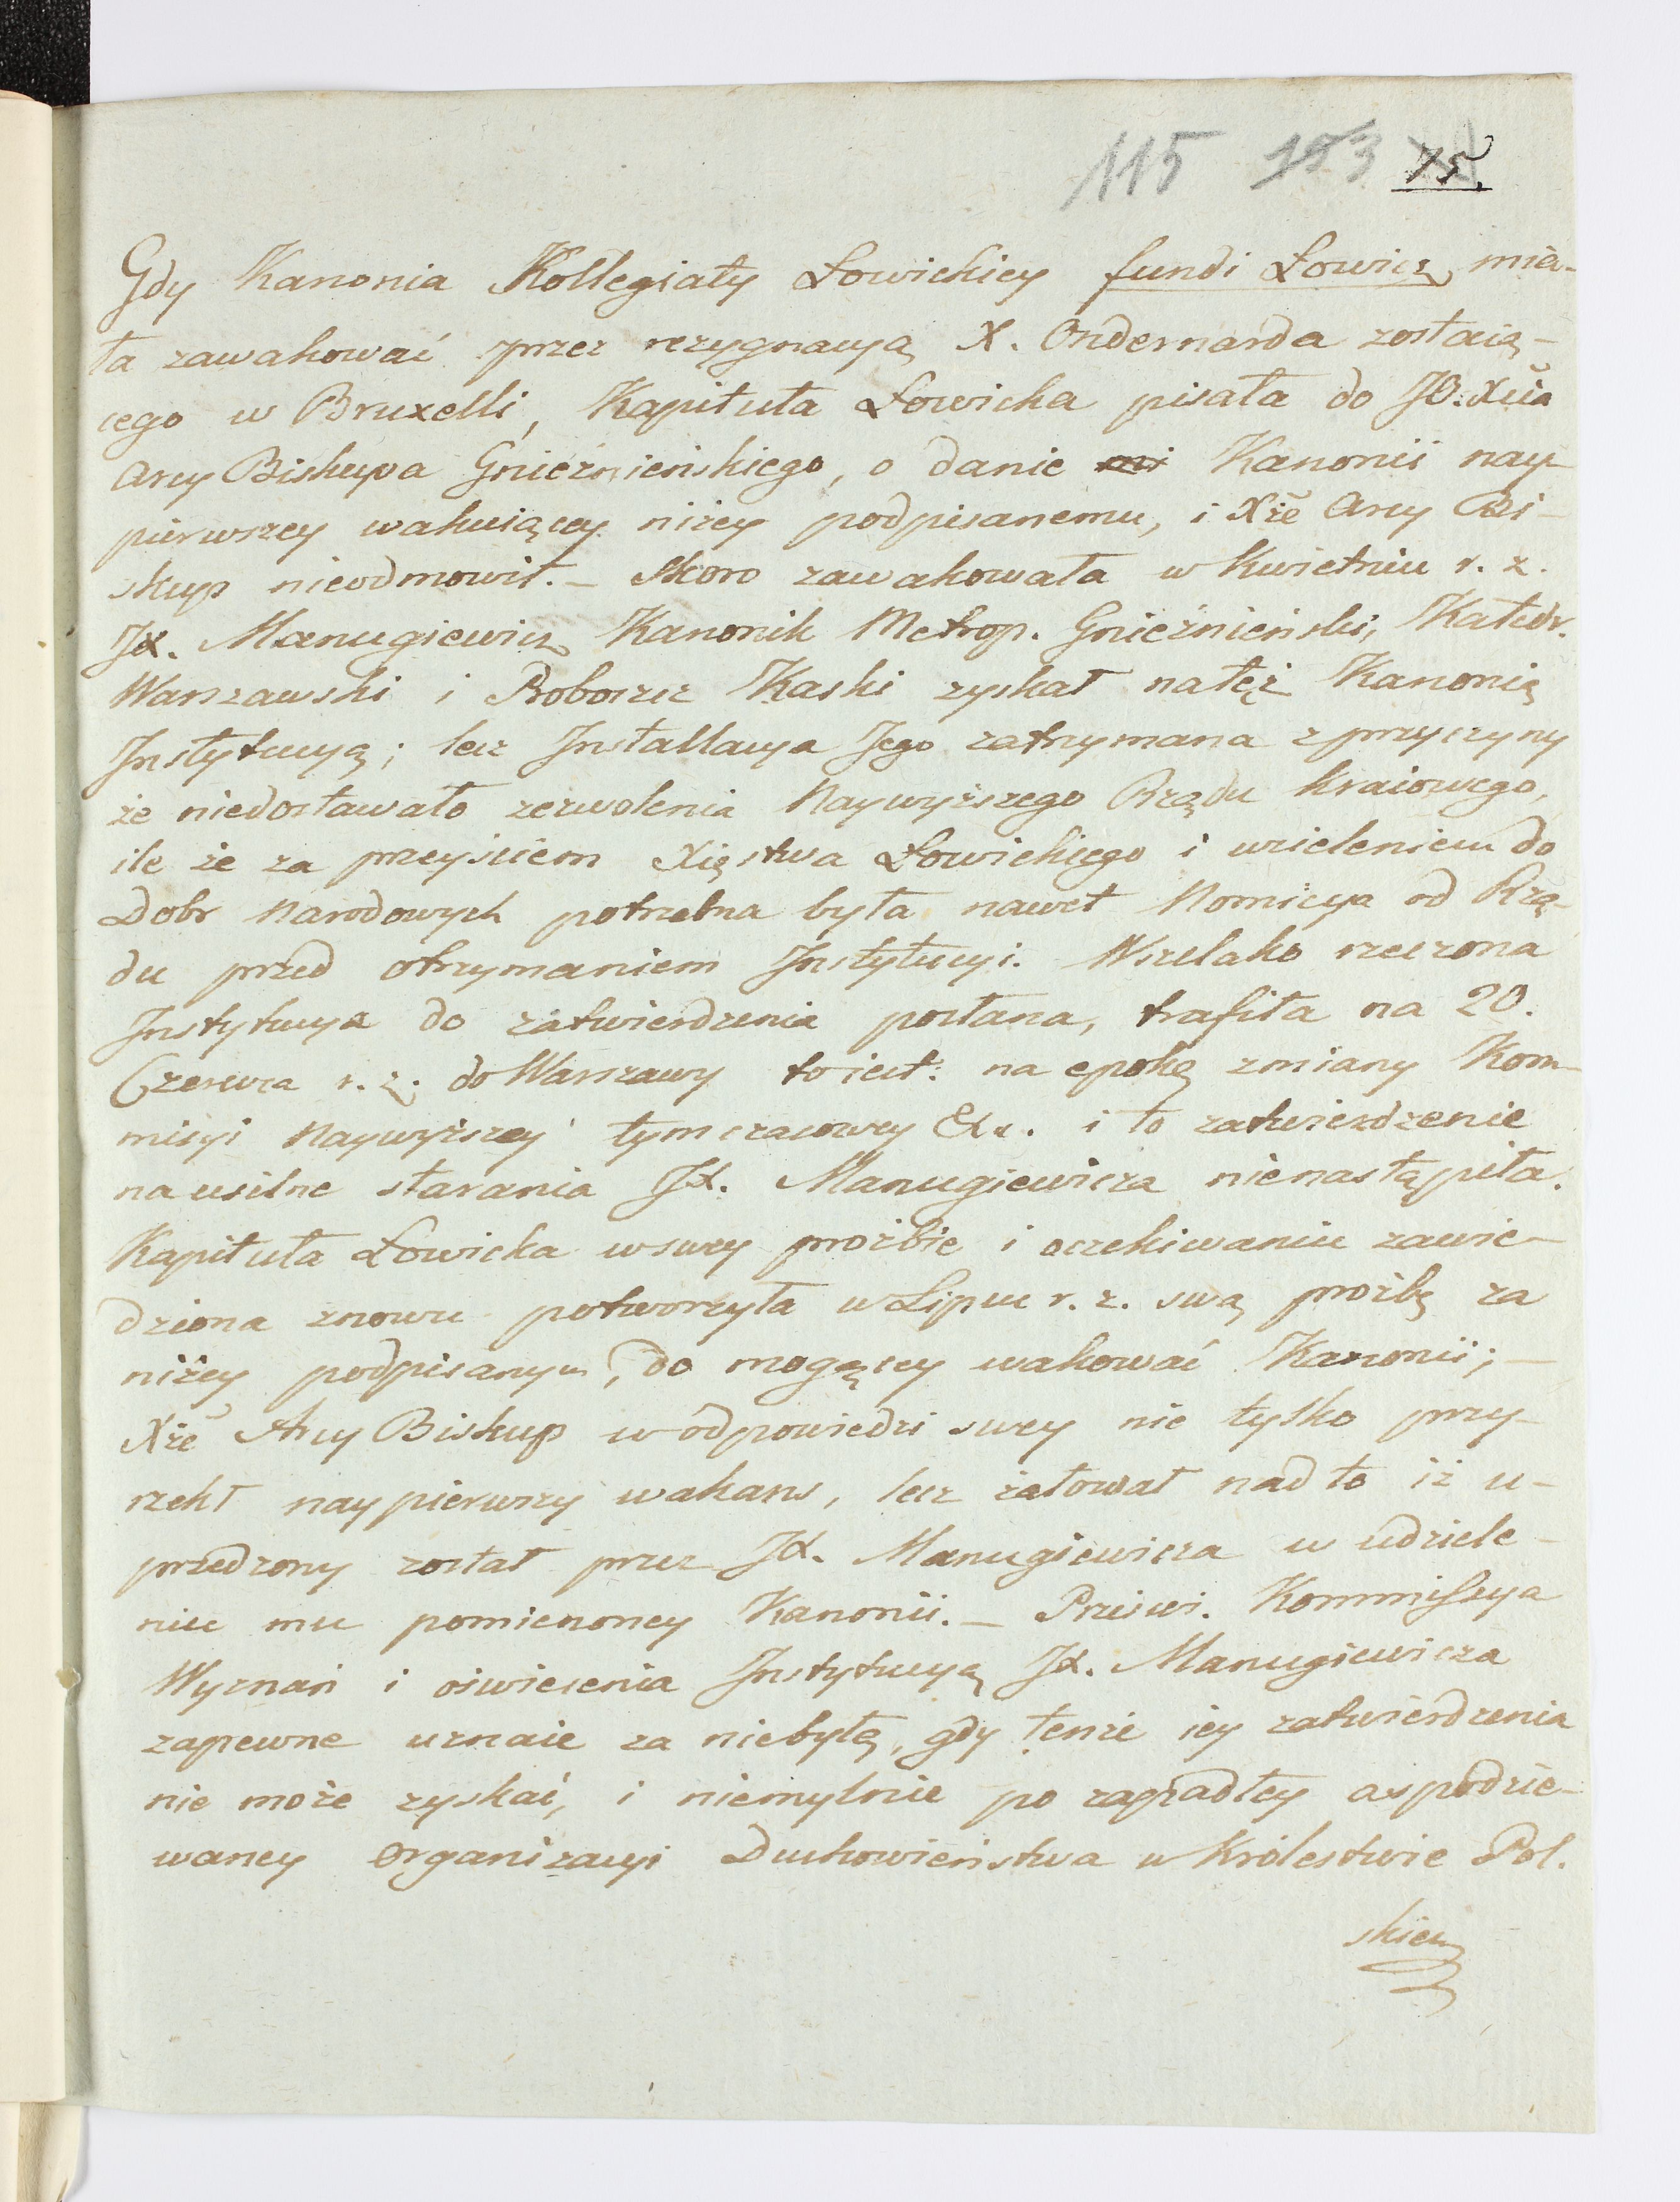 115 153 75.
Gdy Kanonia Kollegiaty Łowickiey fundi Łowicz mia-
ła zawakować przez rezygnacyą X. Ondernarda zostaią-
cego w Bruxelli, Kapituła Łowicka pisała do JO. Xcia
Arcy Biskupa Gnieźnieńskiego, o danie mi Kanonii nay-
pierwszey wakuiącey niżey podpisanemu, i Xże Arcy Bi-
skup nieodmowił. – Skoro zawakowała w Kwietniu r. z.
JX. Manugiewicz Kanonik Metrop. Gnieźnieński, Katedr.
Warszawski i Proboszcz Kaski zyskał natęż Kanonią
Instytucyą; lecz Installacya Jego zatrzymana z przyczyny
że niedostawało zezwolenia Naywyższego Rządu kraiowego,
ile że za przeyściem Xięstwa Łowickiego i wcieleniem do
Dobr Narodowych potrzebna była nawet Nomicya od Rzą-
du przed otrzymaniem Instytucyi. Wszelako rzeczona
Instytucya do zatwierdzenia posłana, trafiła na 20.
Czerwca r. z. do Warszawy to iest: na epokę zmiany Kom-
misyi Naywyższey tymczasowey &c. i to zatwierdzenie
na usilne starania JX. Manugiewicza nienastąpiła.
Kapituła Łowicka w swey prożbie i oczekiwaniu zawie-
dziona znowu potworzyła w Lipcu r. z. swą prożbę za
niżey podpisanym, do mogącey wakować Kanonii; –
Xże Arcy Biskup w odpowiedzi swey nie tylko przy-
rzekł naypierwszy wakans, lecz żałował nad to iż u-
przedzony został przez JX. Manugiewicza w udziele-
niu mu pomienoney Kanonii. – Prześwi. Kommissya
Wyznań i oświecenia Instytucyą JX. Manugiewicza
zapewne uznaie za niebyłą, gdy tenże iey zatwierdzenia
nie może zyskać, i niemylnie po zapadłey a spodzie-
waney Organizacyi Duchowieństwa w Królestwie Pol.
skiem